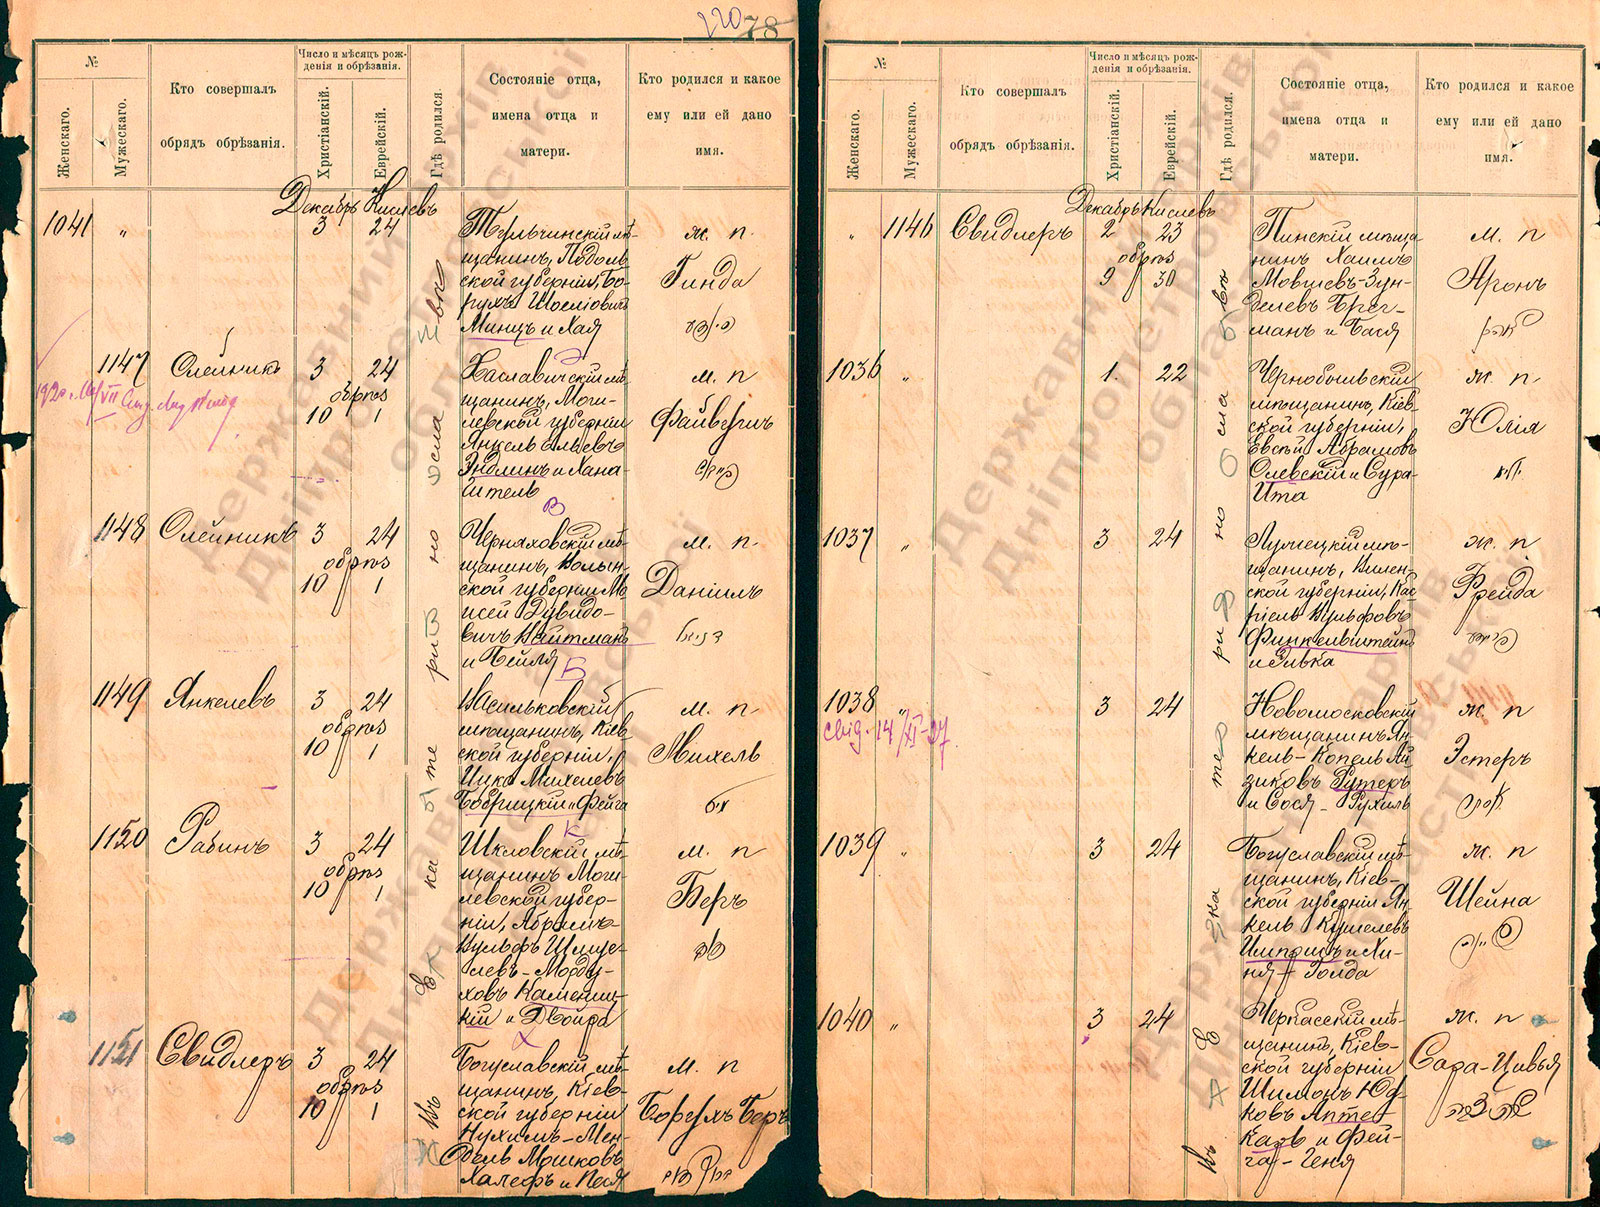 220 78
№
Женскаго.
Мужескаго.
Кто совершалъ
обрядъ обрѣзанія.
Число и мѣсяцъ рож-
денія и обрѣзанія.
Христіанскій.
Еврейскій.
Гдѣ родился.
Состояніе отца,
имена отца и
матери.
Кто родился и какое
ему или ей дано
имя.
Декабрь Кислевъ
1041 " 3 24
Тульчинскій мѣ-
щанинъ, Подоль-
ской губерніи, Бо-
рухъ Іосліовичъ
Минцъ и Хая
ж. п.
Гинда
1147 Олейникъ 3 24
обрѣз
10 1
Хаславичскій мѣ-
щанинъ, Моги-
левской губерніи
Янкель
Эндлинъ и Хана-
Этель
м. п
Файвишъ
1148 Олейникъ 3 24
обрѣз
10 1
В
Черняховскій мѣ-
щанинъ, Волын-
ской губерніи Мо-
исей Дувидо-
вичъ Вейтманъ
и Бейля
м. п.
Даніилъ
1149 Янкелевъ 3 24
обрѣз
10 1
Б
Васильковскій
мѣщанинъ, Кіев-
ской губерніи,
Ицко Михелевъ
Бобрицкій и Фейга
м. п
Михель
1150 Рабинъ 3 24
обрѣз
10 1
К
Шкловскій мѣ-
щанинъ Моги-
левской губер-
ніи, Абрамъ-
Вульфъ Шмуе-
левъ-Морду-
ховъ Каменец-
кій и Двойра
м. п
Беръ
1151 Свидлеръ 3 24
обрѣз
10 1
Х
Богуславскій мѣ-
щанинъ, Кіев-
ской губерніи
Нухимъ-Мен-
дель Мошковъ
Халефъ и Песя
м. п
Борухъ Беръ
Екатеринославѣ
№
Женскаго.
Мужескаго.
Кто совершалъ
обрядъ обрѣзанія.
Число и мѣсяцъ рож-
денія и обрѣзанія.
Христіанскій.
Еврейскій.
Гдѣ родился.
Состояніе отца,
имена отца и
матери.
Кто родился и какое
ему или ей дано
имя.
Декабрь Кислевъ
" 1146 Свидлеръ 2 23
обрѣз
9 30
Пинскій мѣща-
нинъ Хаимъ
Мовшевъ-Зун-
делевъ Брег-
манъ и Бася
м. п
Аронъ
1036 " 1. 22
Чернобыльскій
мѣщанинъ, Кіев-
ской губерніи,
Евсѣй Абрамовъ
Олевскій и Сура-
Ита
ж. п
Юлія
1037 " 3 24
мѣ-
щанинъ, Вилен-
ской губерніи, Кас-
ріель Вульфовъ
Финкельштейнъ
и Ривка
ж. п
Фрейда
1038 " 3 24
свід. 14/XI-27
Новомосковскій
мѣщанинъ Ян-
кель-Копель Ай-
зиковъ Рутеръ
и Сося-Рухиль
ж. п
Эстеръ
1039 " 3 24
Богуславскій мѣ-
щанинъ, Кіев-
ской губерніи Ян-
кель Кушелевъ
и Хи-
ня-Голда
ж. п
Шейна
1040 " 3 24
Черкасскій мѣ-
щанинъ, Кіев-
ской губерніи
Шимонъ Юд-
ковъ Аптe-
карь и Фей-
га-Геня
ж. п
Сара-Цивья
Екатеринославѣ
Державний архів
Дніпропетровської
області